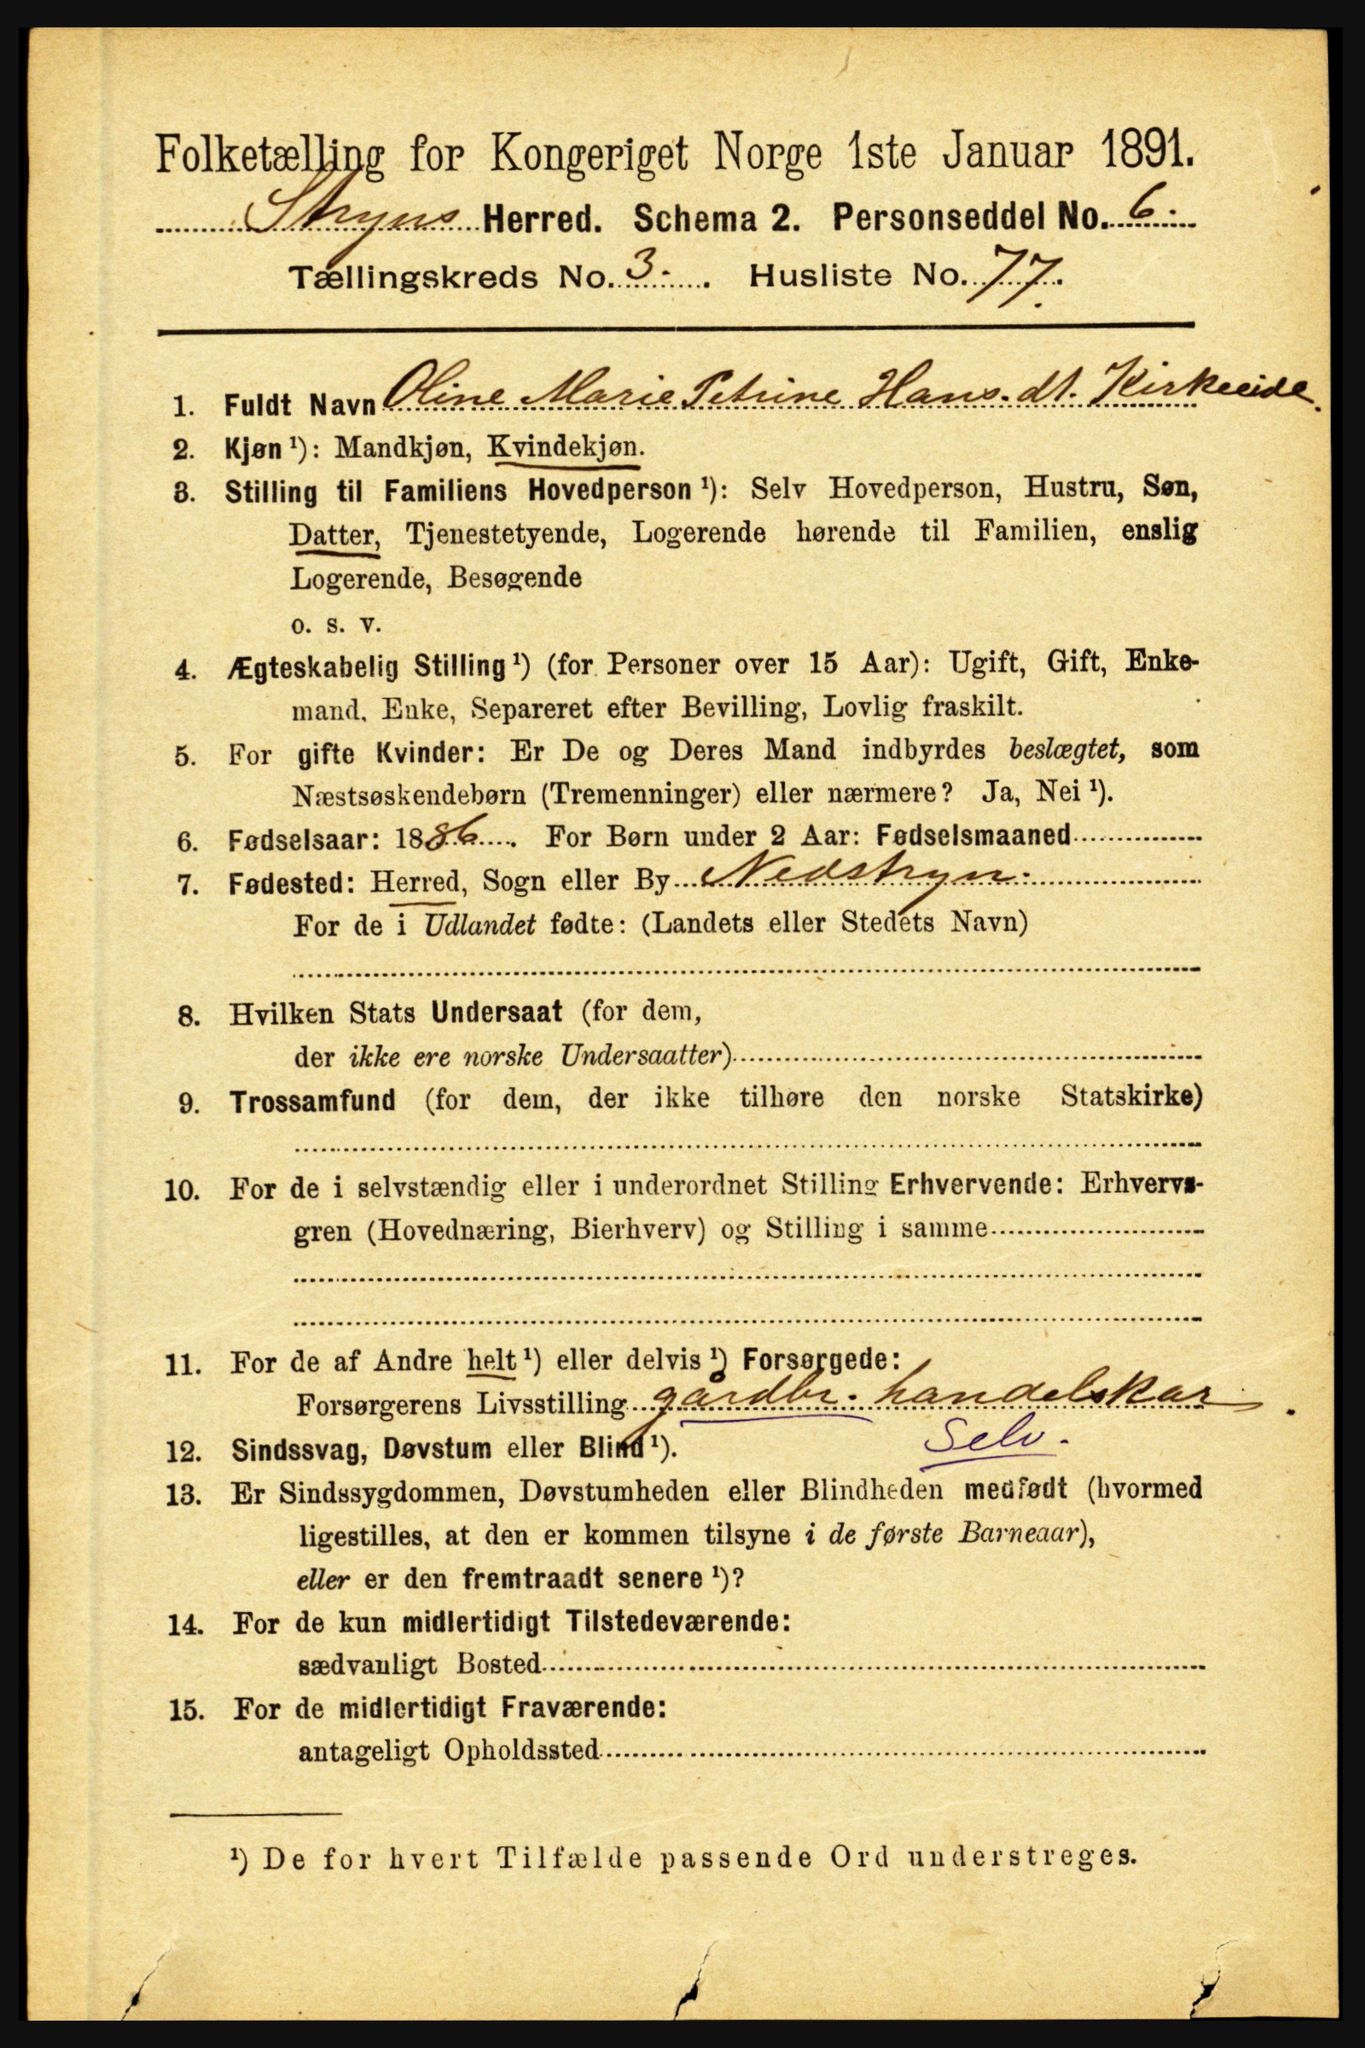 Folketælling for Kongeriget Norge 1ste Januar 1891.
Stryns Herred. Schema 2. Personseddel No. 6.
Tællingskreds No. 3. Husliste No. 77.
1. Fuldt Navn Oline Marie Petrine Hans.dt. Kirkeeide.
2. Kjøn ¹): Mandkjøn, Kvindekjøn.
3. Stilling til Familiens Hovedperson ¹): Selv Hovedperson, Hustru, Søn,
Datter, Tjenestetyende, Logerende hørende til Familien, enslig
Logerende, Besøgende
o. s. v.
4. Ægteskabelig Stilling ¹) (for Personer over 15 Aar): Ugift, Gift, Enke-
mand, Enke, Separeret efter Bevilling, Lovlig fraskilt.
5. For gifte Kvinder: Er De og Deres Mand indbyrdes beslægtet, som
Næstsøskendebørn (Tremenninger) eller nærmere? Ja, Nei ¹).
6. Fødselsaar: 1886. For Børn under 2 Aar: Fødselsmaaned
7. Fødested: Herred, Sogn eller By Nedstryn.
For de i Udlandet fødte: (Landets eller Stedets Navn)
8. Hvilken Stats Undersaat (for dem,
der ikke ere norske Undersaatter)
9. Trossamfund (for dem, der ikke tilhøre den norske Statskirke)
10. For de i selvstændig eller i underordnet Stilling Erhvervende: Erhvervs-
gren (Hovednæring, Bierhverv) og Stilling i samme
11. For de af Andre helt ¹) eller delvis ¹) Forsørgede:
Forsørgerens Livsstilling gårdbr. handelskar
Selv.
12. Sindssvag, Døvstum eller Blind ¹).
13. Er Sindssygdommen, Døvstumheden eller Blindheden medfødt (hvormed
ligestilles, at den er kommen tilsyne i de første Barneaar),
eller er den fremtraadt senere ¹)?
14. For de kun midlertidigt Tilstedeværende:
sædvanligt Bosted
15. For de midlertidigt Fraværende:
antageligt Opholdssted
¹) De for hvert Tilfælde passende Ord understreges.